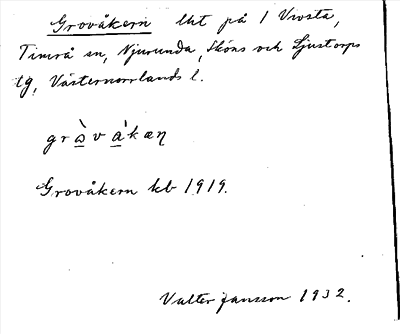 Grovåkern lht på 1 Vivsta,
Timrå sn, Njurunda, Sköns och Ljustorps
tg, Västernorrlands l.
Grovåkern kb 1919.
Valter Jansson 1932.